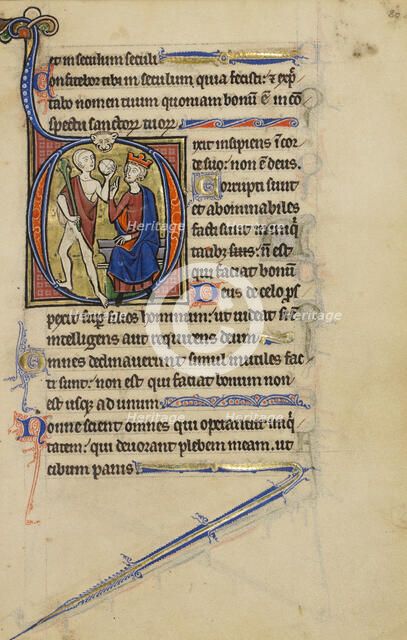 et in seculum seculi
Confitebor tibi in seculum, quia fecisti: & exp̄
tabo nomen tuum quoniam bonū ē in cō
spectu sanctorꝝ tuorꝝ
Dixit insipiens ī cor
de suo: non ē deus.
Corrupti sunt
et abominabiles
facti sunt in iniqͥ
tatibꝫ suis: nō est
qui faciat bonum
Deus de celo ꝓs
pexit suꝑ filios hominum: ut uideat si ē
intelligens aut requirens deum
Omnes declinauerunt simul inutiles fac
ti sunt: non est qui faciat bonum non
est usqꝫ ad unum
Nonne scient omnes qui operantur iniqͥ
tatem: qui deuorant plebem meam ut
cibum panis
©
Heritage
Heritage
Heritage
Heritage
Heritage
Heritage